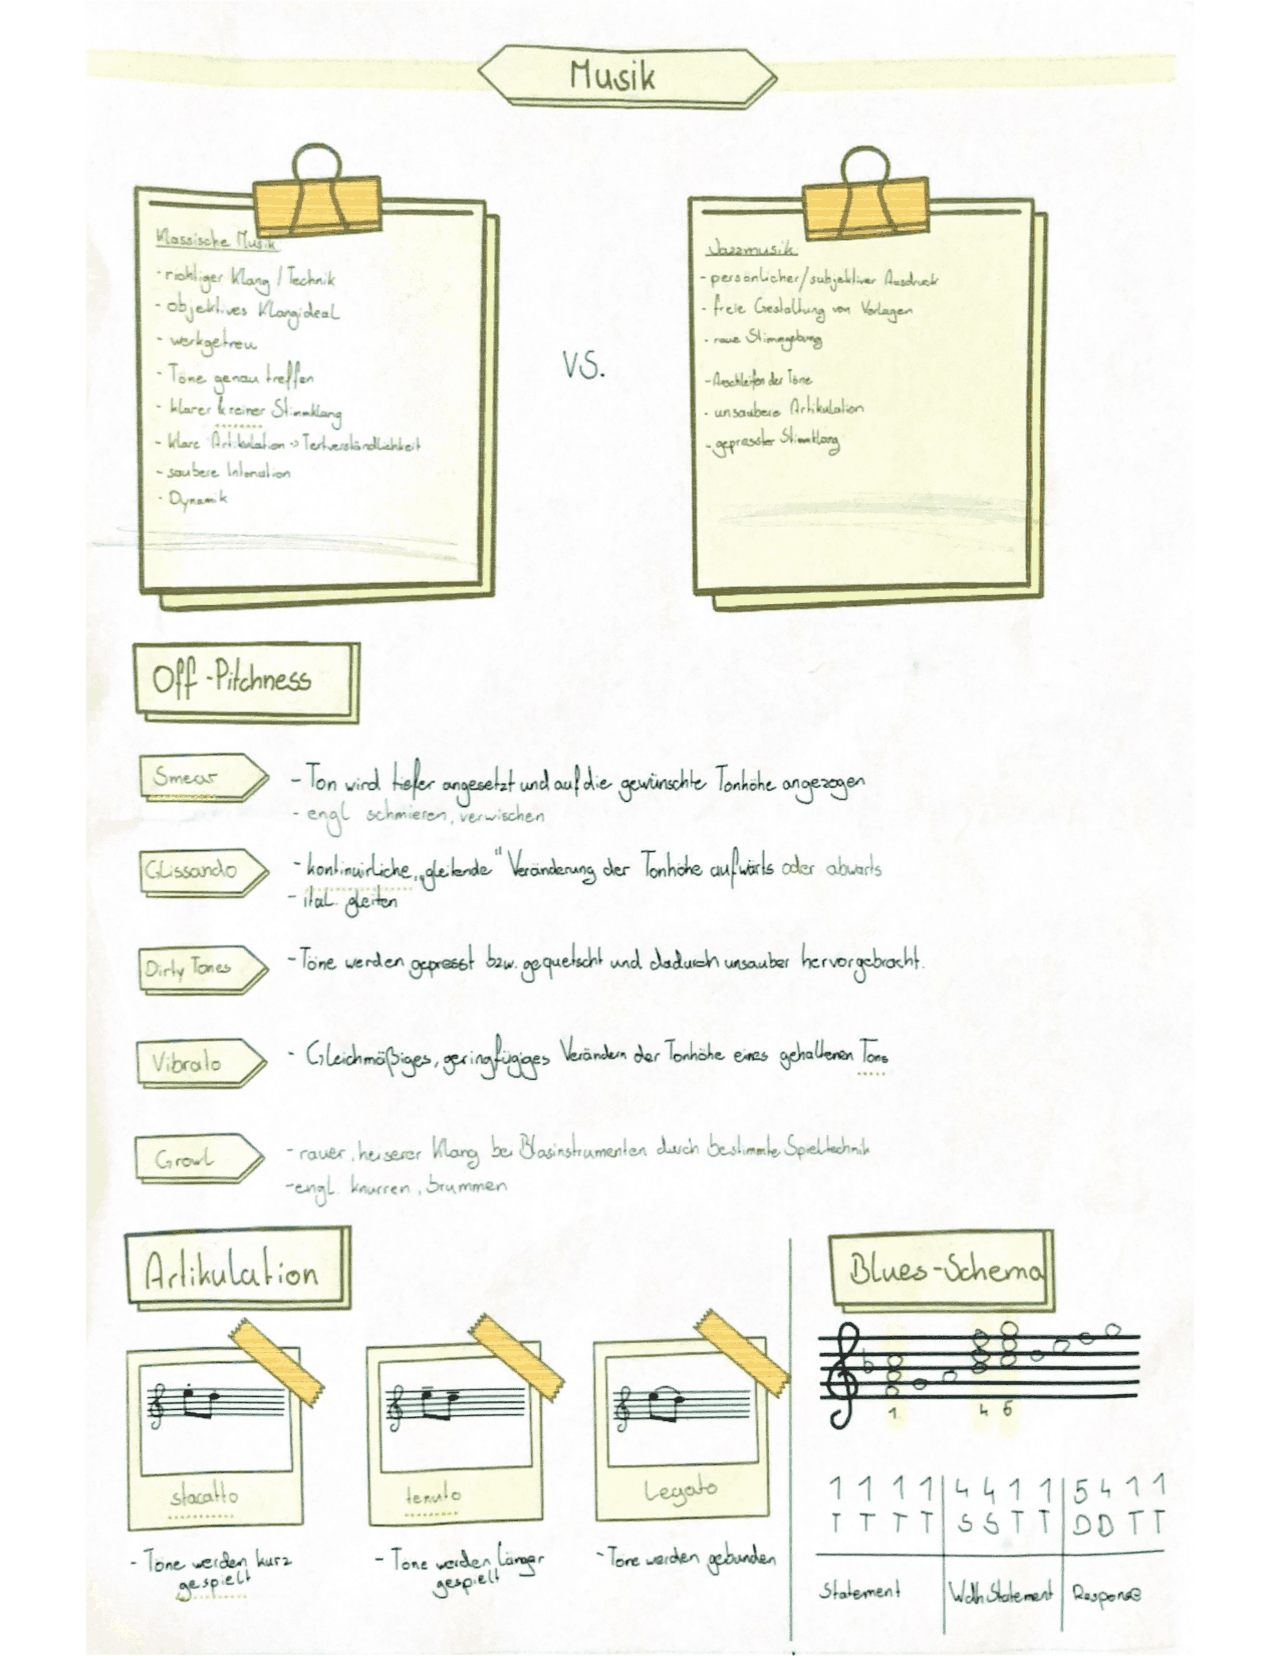 Musik
Klassische Musik
- richtiger Klang / Technik
- objektives Klangideal
- werkgetreu
- Töne genau treffen
- klarer & reiner Stimmklang
- klare Artikulation -> Textverständlichkeit
- saubere Intonation
- Dynamik
VS.
Jazzmusik
- persönlicher/subjektiver Ausdruck
- freie Gestaltung von Vorlagen
- raue Stimmgebung
- Anschleifen der Töne
- unsaubere Artikulation
- gepresster Stimmklang
Off-Pitchness
Smear
- Ton wird tiefer angesetzt und auf die gewünschte Tonhöhe angezogen
- engl schmieren, verwischen
Glissando
- kontinuirliche „gleitende" Veränderung der Tonhöhe aufwärts oder abwärts
- ital. gleiten
Dirty Tones
- Töne werden gepresst bzw. gequetscht und dadurch unsauber hervorgebracht.
Vibrato
- Gleichmäßiges, geringfügiges Verändern der Tonhöhe eines gehaltenen Tons
Growl
- rauer, heiserer Klang bei Blasinstrumenten durch bestimmte Spieltechnik
- engl. knurren, brummen
Artikulation
stacatto
- Töne werden kurz
gespielt
tenuto
- Töne werden länger
gespielt
Legato
- Töne werden gebunden
Blues-Schema
1 4 5
1 1 1 1 4 4 1 1 5 4 1 1
T T T T S S T T D D T T
Statement Wdh Statement Response